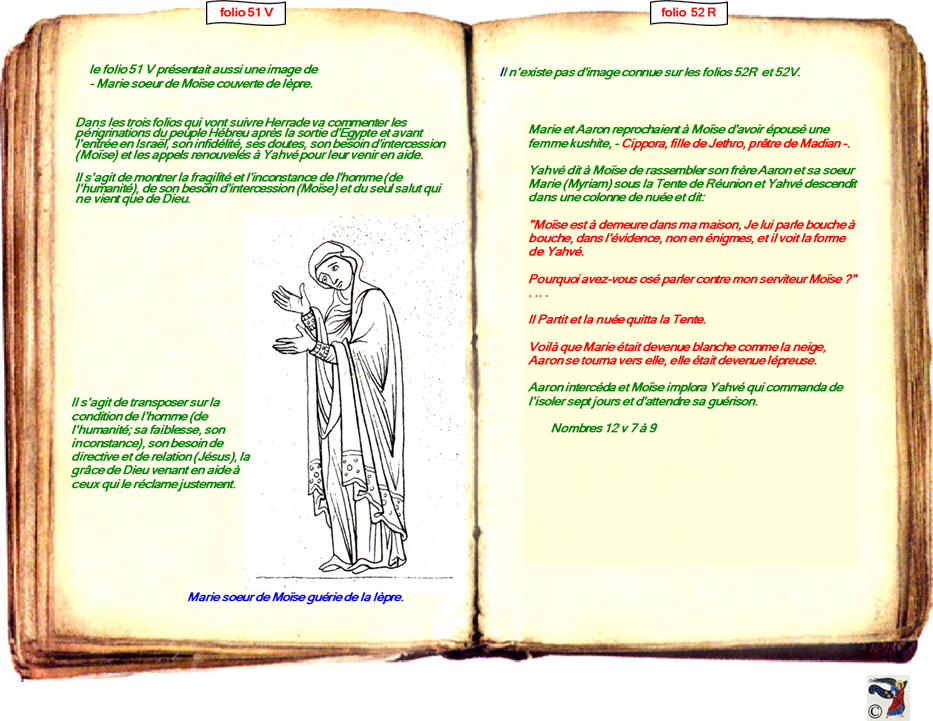 folio 51 V
le folio 51 V présentait aussi une image de
- Marie soeur de Moïse couverte de lèpre.
Dans les trois folios qui vont suivre Herrade va commenter les
périgrinations du peuple Hébreu après la sortie d'Egypte et avant
l'entrée en Israël, son infidélité, ses doutes, son besoin d'intercession
(Moïse) et les appels renouvelés à Yahvé pour leur venir en aide.
Il s'agit de montrer la fragilité et l'inconstance de l'homme (de
l'humanité), de son besoin d'intercession (Moïse) et du seul salut qui
ne vient que de Dieu.
Il s'agit de transposer sur la
condition de l'homme (de
l'humanité; sa faiblesse, son
inconstance), son besoin de
directive et de relation (Jésus), la
grâce de Dieu venant en aide à
ceux qui le réclame justement.
Marie soeur de Moïse guérie de la lèpre.
folio 52 R
Il n'existe pas d'image connue sur les folios 52R et 52V.
Marie et Aaron reprochaient à Moïse d'avoir épousé une
femme kushite, - Cippora, fille de Jethro, prêtre de Madian -.
Yahvé dit à Moïse de rassembler son frère Aaron et sa soeur
Marie (Myriam) sous la Tente de Réunion et Yahvé descendit
dans une colonne de nuée et dit:
"Moïse est à demeure dans ma maison, Je lui parle bouche à
bouche, dans l'évidence, non en énigmes, et il voit la forme
de Yahvé.
Pourquoi avez-vous osé parler contre mon serviteur Moïse ?"
. . . .
Il Partit et la nuée quitta la Tente.
Voilà que Marie était devenue blanche comme la neige,
Aaron se tourna vers elle, elle était devenue lépreuse.
Aaron intercéda et Moïse implora Yahvé qui commanda de
l'isoler sept jours et d'attendre sa guérison.
Nombres 12 v 7 à 9
©